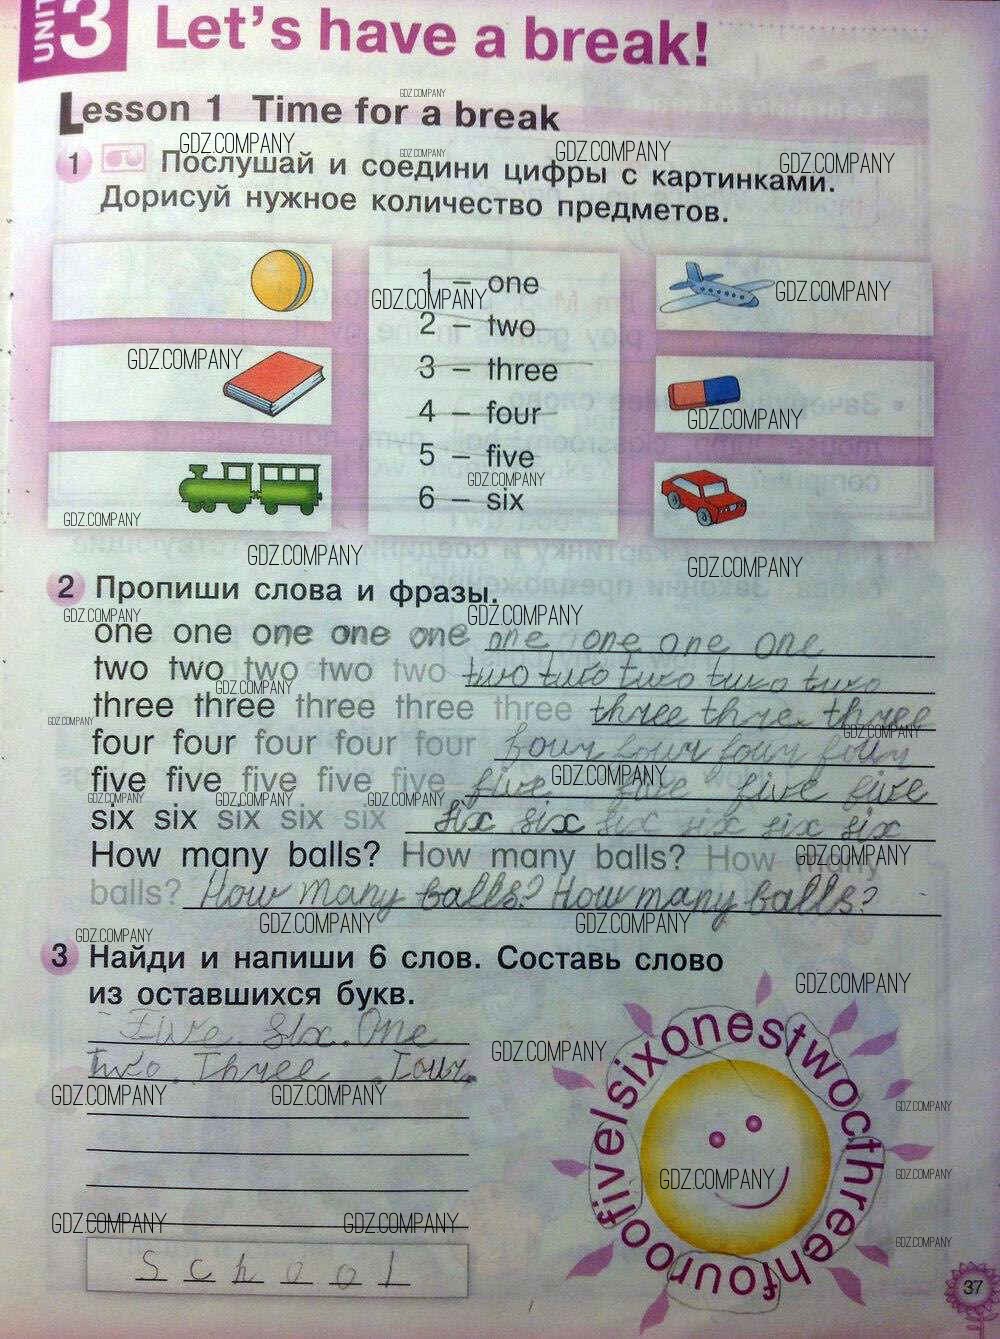 UNIT 3 Let's have a break!
Lesson 1 Time for a break
GDZ.COMPANY
1 Послушай и соедини цифры с картинками.
Дорисуй нужное количество предметов.
1 – one
2 – two
3 – three
4 – four
5 – five
6 – six
2 Пропиши слова и фразы.
one one one one one one one one one
two two two two two two two two two two
three three three three three three three three
four four four four four four four four four
five five five five five five five five five
six six six six six six six six six six six
How many balls? How many balls? How many
balls? How many balls? How many balls?
3 Найди и напиши 6 слов. Составь слово
из оставшихся букв.
Five Six One
Two Three Four
fivelsixonestwocthreehfouroo
School
37